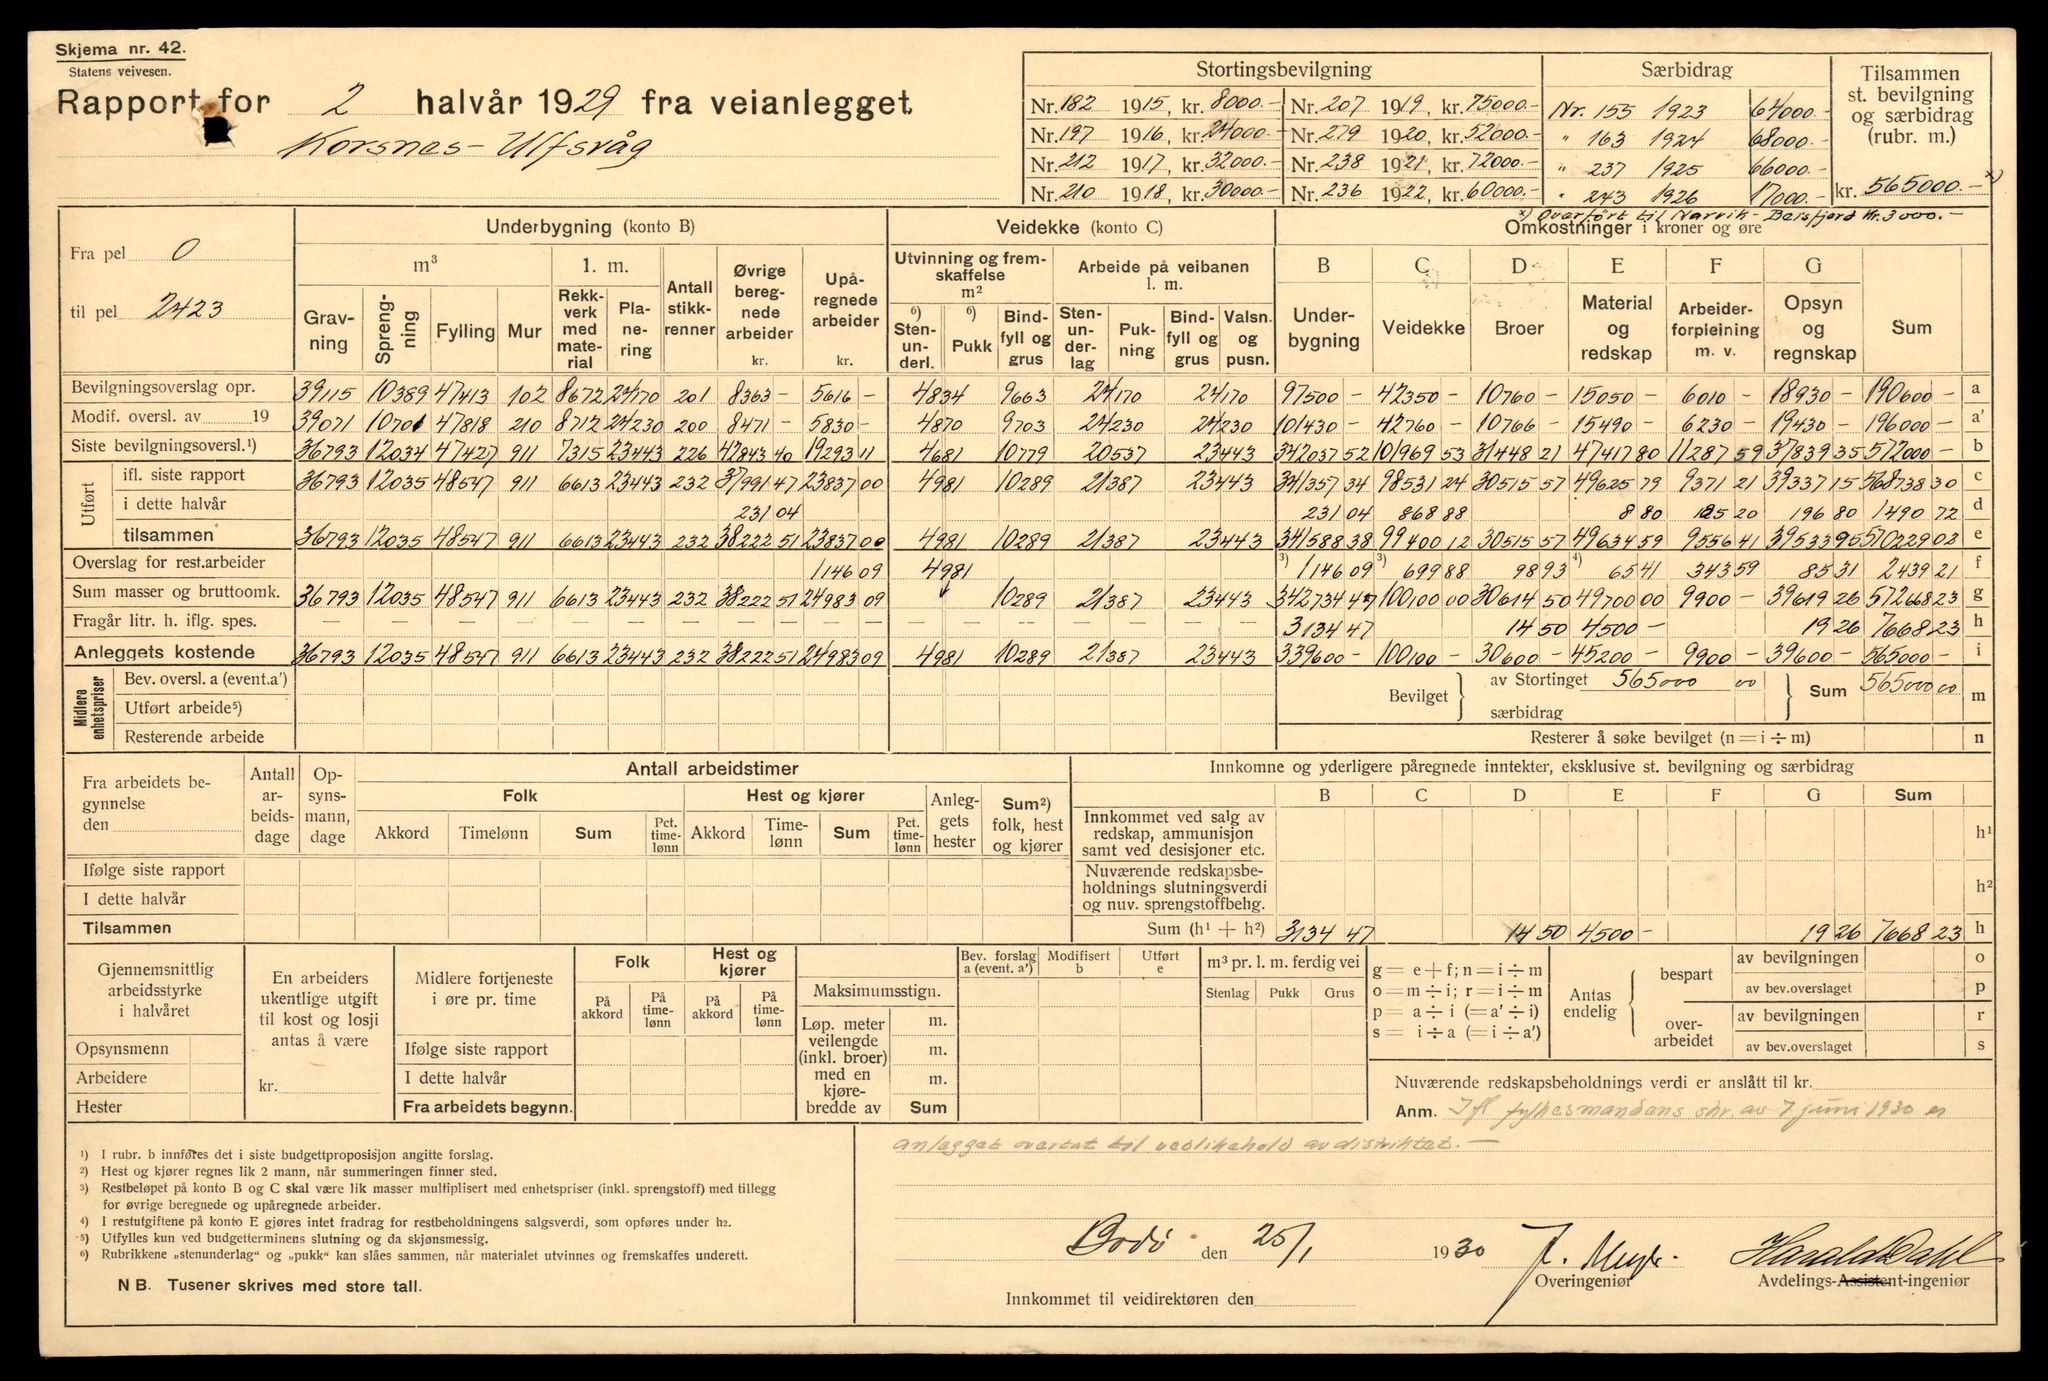 Skjema nr. 42.
Statens veivesen.
Rapport for 2 halvår 1929 fra veianlegget
Korsnes - Ulfsvåg
Stortingsbevilgning
Nr. 182 1915, kr. 8000.- Nr. 207 1919, kr. 75000.-
Nr. 197 1916, kr. 24000.- Nr. 279 1920, kr. 52000.-
Nr. 212 1917, kr. 32000.- Nr. 238 1921, kr. 72000.-
Nr. 210 1918, kr. 30000.- Nr. 236 1922, kr. 60000.-
Særbidrag
Nr. 155 1923 64000.-
" 163 1924 68000.-
" 237 1925 66000.-
" 243 1926 17000.-
Tilsammen
st. bevilgning
og særbidrag
(rubr. m.)
kr. 565000.- x)
x) Overført til Narvik - Beisfjord kr. 3000.-
Fra pel 0
til pel 2423
Underbygning (konto B)
m³
l. m.
Gravning
Sprengning
Fylling
Mur
Rekkverk med material
Planering
Antall stikkrenner
Øvrige beregnede arbeider kr.
Upåregnede arbeider kr.
Veidekke (konto C)
Utvinning og fremskaffelse m²
⁶) Stenunderl.
⁶) Pukk
Bindfyll og grus
Arbeide på veibanen l. m.
Stenunderlag
Pukning
Bindfyll og grus
Valsn. og pusn.
Omkostninger i kroner og øre
B Underbygning
C Veidekke
D Broer
E Material og redskap
F Arbeiderforpleining m. v.
G Opsyn og regnskap
Sum
Bevilgningsoverslag opr. 39115 10389 47413 102 8672 24170 201 8363 - 5616 - 4834 9663 24170 24170 97500 - 42350 - 10760 - 15050 - 6010 - 18930 - 190600 - a
Modif. oversl. av 19 39071 10701 47818 210 8712 24230 200 8471 - 5830 - 4870 9703 24230 24230 101430 - 42760 - 10766 - 15490 - 6230 - 19430 - 196000 - a'
Siste bevilgningsoversl.¹) 36793 12034 47427 911 7315 23443 226 42843 40 19293 11 4681 10779 20537 23443 342037 52 101969 53 31448 21 47417 80 11287 59 37839 35 572000 - b
Utført
ifl. siste rapport 36793 12035 48547 911 6613 23443 232 37991 47 23837 00 4981 10289 21387 23443 341357 34 98531 24 30515 57 49625 79 9371 21 39337 15 568738 30 c
i dette halvår 231 04 231 04 868 88 8 80 185 20 196 80 1490 72 d
tilsammen 36793 12035 48547 911 6613 23443 232 38222 51 23837 00 4981 10289 21387 23443 341588 38 99400 12 30515 57 49634 59 9556 41 39533 95 570229 02 e
Overslag for rest.arbeider 1146 09 4981 ³) 1146 09 ³) 699 88 98 93 ⁴) 65 41 343 59 85 31 2439 21 f
Sum masser og bruttoomk. 36793 12035 48547 911 6613 23443 232 38222 51 24983 09 10289 21387 23443 342734 47 100100 00 30614 50 49700 00 9900 - 39619 26 572668 23 g
Fragår litr. h. iflg. spes. — — — — — — — — — — — — — 3134 47 14 50 4500 - 19 26 7668 23 h
Anleggets kostende 36793 12035 48547 911 6613 23443 232 38222 51 24983 09 4981 10289 21387 23443 339600 - 100100 - 30600 - 45200 - 9900 - 39600 - 565000 - i
Midlere enhetspriser
Bev. oversl. a (event.a')
Utført arbeide⁵)
Resterende arbeide
Bevilget av Stortinget 565000 00 Sum 565000 00 m
særbidrag
Resterer å søke bevilget (n = i ÷ m) n
Fra arbeidets begynnelse
den
Antall arbeidsdage
Opsynsmann, dage
Antall arbeidstimer
Folk
Akkord Timelønn Sum Pct. timelønn
Hest og kjører
Akkord Timelønn Sum Pct. timelønn
Anleggets hester
Sum²) folk, hest og kjører
Ifølge siste rapport
I dette halvår
Tilsammen
Innkomne og yderligere påregnede inntekter, eksklusive st. bevilgning og særbidrag
B C D E F G Sum
Innkommet ved salg av
redskap, ammunisjon
samt ved desisjoner etc. h¹
Nuværende redskapsbe-
holdnings slutningsverdi
og nuv. sprengstoffbehg. h²
Sum (h¹ + h²) 3134 47 14 50 4500 - 19 26 7668 23 h
Gjennemsnittlig
arbeidsstyrke
i halvåret
Opsynsmenn
Arbeidere
Hester
En arbeiders
ukentlige utgift
til kost og losji
antas å være
kr.
Midlere fortjeneste
i øre pr. time
Folk
På akkord På timelønn
Hest og kjører
På akkord På timelønn
Ifølge siste rapport
I dette halvår
Fra arbeidets begynn.
Maksimumsstign.
Løp. meter
veilengde
(inkl. broer)
med en
kjøre-
bredde av
m.
m.
m.
Sum
Bev. forslag a (event. a')
Modifisert b
Utført e
m³ pr. l. m. ferdig vei
Stenlag Pukk Grus
g = e + f; n = i ÷ m
o = m ÷ i; r = i ÷ m
p = a ÷ i (= a' ÷ i)
s = i ÷ a (= i ÷ a')
Antas endelig
bespart
av bevilgningen o
av bev.overslaget p
overarbeidet
av bevilgningen r
av bev.overslaget s
Nuværende redskapsbeholdnings verdi er anslått til kr.
Anm. Ifl fylkesmandens skr. av 7 juni 1930 er
anlegget overtat til vedlikehold av distriktet. —
¹) I rubr. b innføres det i siste budgettproposisjon angitte forslag.
²) Hest og kjører regnes lik 2 mann, når summeringen finner sted.
³) Restbeløpet på konto B og C skal være lik masser multiplisert med enhetspriser (inkl. sprengstoff) med tillegg
for øvrige beregnede og upåregnede arbeider.
⁴) I restutgiftene på konto E gjøres intet fradrag for restbeholdningens salgsverdi, som opføres under h².
⁵) Utfylles kun ved budgetterminens slutning og da skjønsmessig.
⁶) Rubrikkene „stenunderlag" og „pukk" kan slåes sammen, når materialet utvinnes og fremskaffes underett.
NB. Tusener skrives med store tall.
Bodø den 25/1 1930
Overingeniør
Harald Dahl
Avdelings-Assistent-ingeniør
Innkommet til veidirektøren den